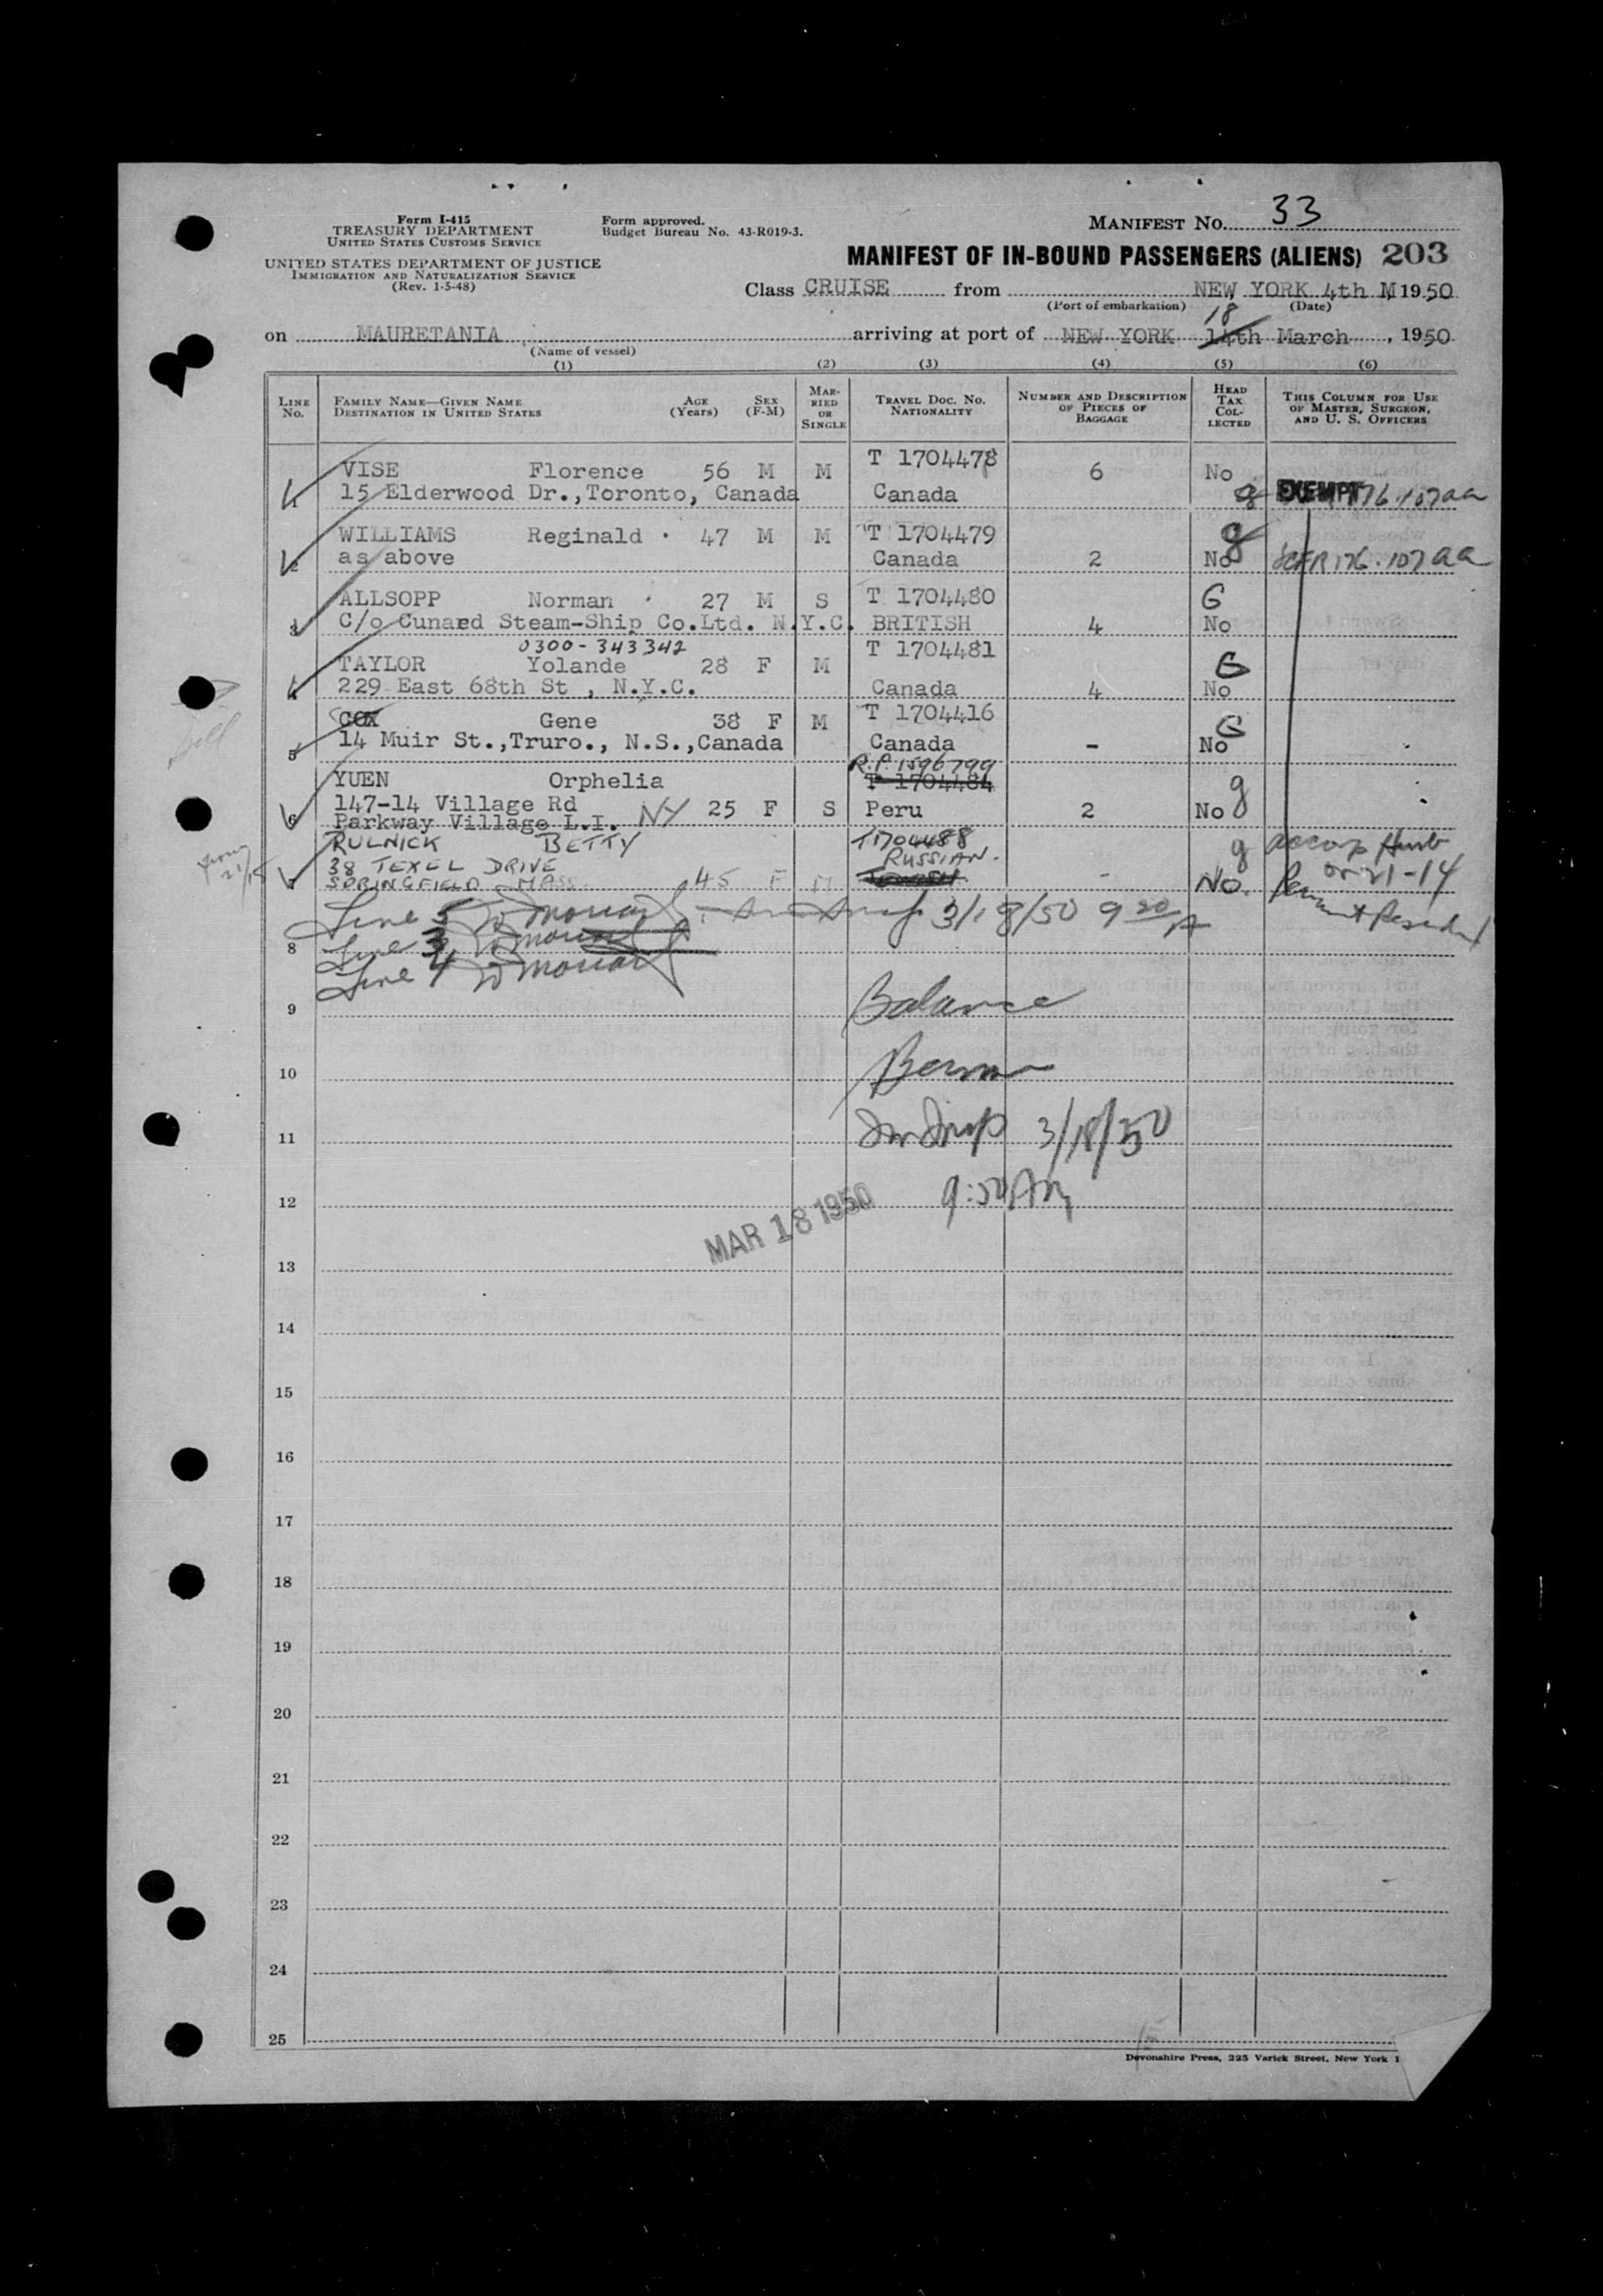 Form I-415
TREASURY DEPARTMENT
UNITED STATES CUSTOMS SERVICE
UNITED STATES DEPARTMENT OF JUSTICE
IMMIGRATION AND NATURALIZATION SERVICE
(Rev. 1-5-48)
Form approved.
Budget Bureau No. 43-R019-3.
MANIFEST NO. 33
MANIFEST OF IN-BOUND PASSENGERS (ALIENS) 203
Class CRUISE from NEW YORK 4th M 1950
(Port of embarkation) (Date)
18
on MAURETANIA arriving at port of NEW YORK 14th March, 1950
(Name of vessel)
(1) (2) (3) (4) (5) (6)
LINE No. FAMILY NAME—GIVEN NAME DESTINATION IN UNITED STATES AGE (Years) SEX (F-M) MARRIED OR SINGLE TRAVEL DOC. NO. NATIONALITY NUMBER AND DESCRIPTION OF PIECES OF BAGGAGE HEAD TAX COLLECTED THIS COLUMN FOR USE OF MASTER, SURGEON, AND U. S. OFFICERS
VISE Florence 56 M M T 1704478 6 No
1 15 Elderwood Dr., Toronto, Canada Canada g EXEMPT 176.107aa
WILLIAMS Reginald 47 M M T 1704479 g
2 as above Canada 2 No 8CFR176.107aa
ALLSOPP Norman 27 M S T 1704480 G
3 C/o Cunard Steam-Ship Co.Ltd. N.Y.C. BRITISH 4 No
0300-343342
TAYLOR Yolande 28 F M T 1704481 G
4 229 East 68th St , N.Y.C. Canada 4 No
COX Gene 38 F M T 1704416 G
5 14 Muir St.,Truro., N.S.,Canada Canada - No
R.P. 1596799
YUEN Orphelia T 1704484 g
147-14 Village Rd
6 Parkway Village L.I. NY 25 F S Peru 2 No
RULNICK BETTY T1704488 g accomp Husb
38 TEXEL DRIVE RUSSIAN. on 21-14
7 SPRINGFIELD MASS. 45 F M - NO. Permant Resident
Line 5 3/18/50 9 20 A
8 Line 3
Line 4
9 Balance
10
11 3/18/50
12 9:50 Am
MAR 18 1950
13
14
15
16
17
18
19
20
21
22
23
24
25
Devonshire Press, 225 Varick Street, New York 1